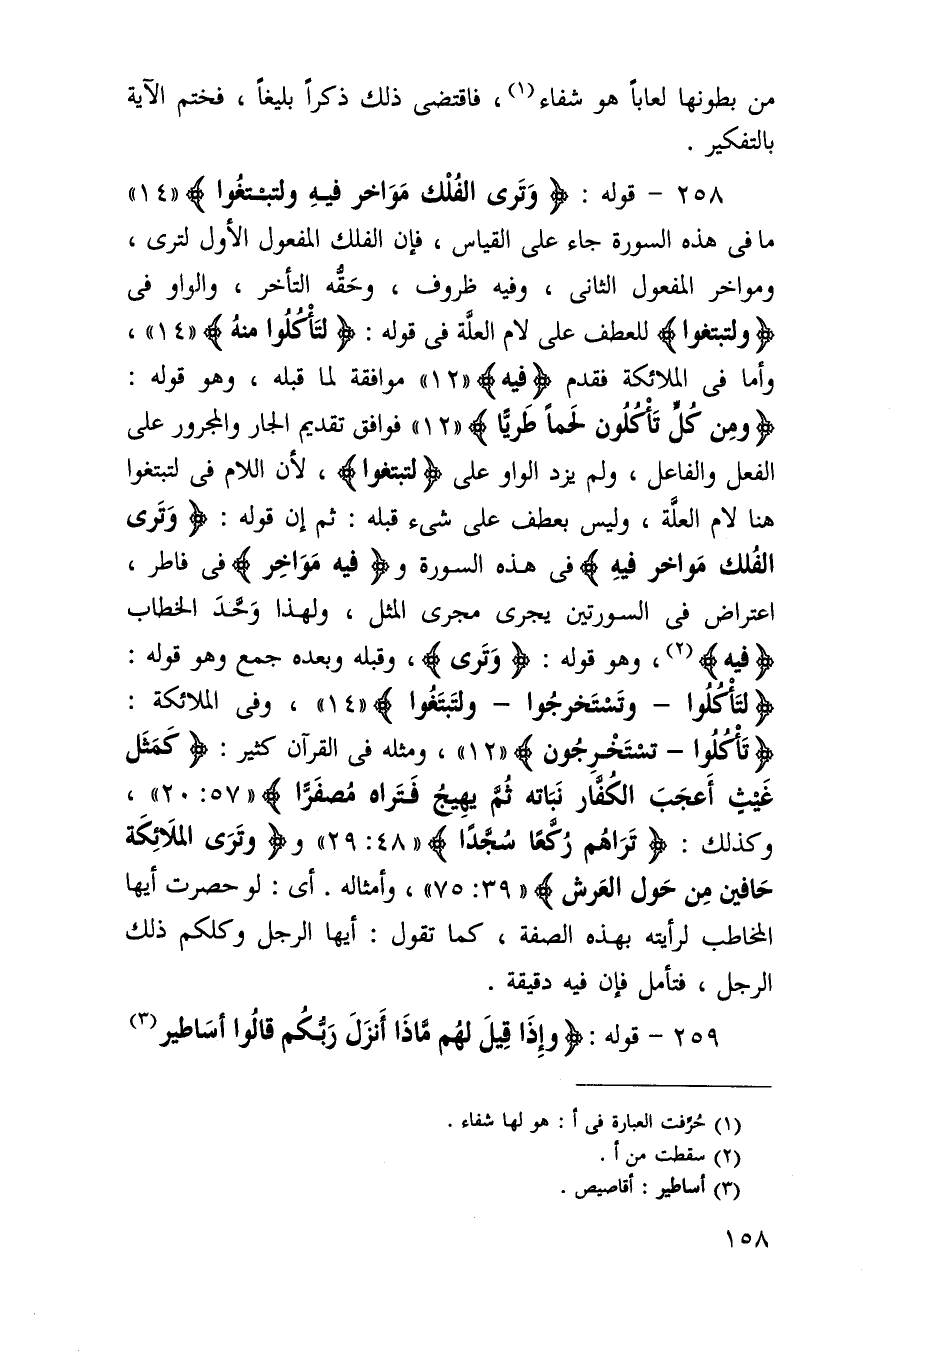 من بطونها لعاباً هو شفاء(١) ، فاقتضى ذلك ذكراً بليغاً ، فختم الآية
بالتفكير .
٢٥٨ – قوله : ﴿ وَتَرى الفُلْك مَوَاخر فيهِ ولتبْتغُوا ﴾ «١٤»
ما فى هذه السورة جاء على القياس ، فإن الفلك المفعول الأول لترى ،
ومواخر المفعول الثانى ، وفيه ظروف ، وحَقُّه التأخر ، والواو فى
﴿ ولتبتغوا ﴾ للعطف على لام العلَّة فى قوله : ﴿ لتَأْكُلُوا منهُ ﴾ «١٤» ،
وأما فى الملائكة فقدم ﴿ فيه ﴾ «١٢» موافقة لما قبله ، وهو قوله :
﴿ ومِن كُلٍّ تَأْكُلُون لَحماً طَريًّا ﴾ «١٢» فوافق تقديم الجار والمجرور على
الفعل والفاعل ، ولم يزد الواو على ﴿ لتبتغوا ﴾ ، لأن اللام فى لتبتغوا
هنا لام العلَّة ، وليس بعطف على شىء قبله : ثم إن قوله : ﴿ وَتَرى
الفُلك مَواخر فيهِ ﴾ فى هذه السورة و ﴿ فيه مَوَاخِر ﴾ فى فاطر ،
اعتراض فى السورتين يجرى مجرى المثل ، ولهذا وَحَّدَ الخطاب
﴿ فيه ﴾(٢) ، وهو قوله : ﴿ وَتَرى ﴾ ، وقبله وبعده جمع وهو قوله :
﴿ لتَأْكُلُوا – وتَسْتَخرجُوا – ولتَبتَغُوا ﴾ «١٤» ، وفى الملائكة :
﴿ تَأْكُلُوا – تسْتَخْرِجُون ﴾ «١٢» ، ومثله فى القرآن كثير : ﴿ كَمَثَل
غَيْثٍ أَعجَبَ الكُفَّار نَبَاته ثُمَّ يهِيجُ فَتَراه مُصفَرًّا ﴾ «٥٧: ٢٠» ،
وكذلك : ﴿ تَرَاهُم رُكَّعًا سُجَّدًا ﴾ «٤٨: ٢٩» و ﴿ وتَرَى الملَائِكَة
حَافين مِن حَول العَرش ﴾ «٣٩: ٧٥» ، وأمثاله . أى : لو حصرت أيها
المخاطب لرأيته بهذه الصفة ، كما تقول : أيها الرجل وكلكم ذلك
الرجل ، فتأمل فإن فيه دقيقة .
٢٥٩ – قوله : ﴿ وإِذَا قِيلَ لهُم مَّاذَا أَنزَلَ رَبُّكُم قالُوا أسَاطير(٣)
(١) حُرّفت العبارة فى أ : هو لها شفاء .
(٢) سقطت من أ .
(٣) أساطير : أقاصيص .
١٥٨